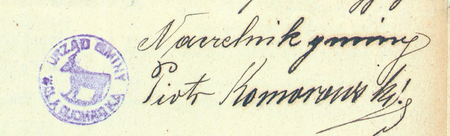 URZĄD GMINY
WOLA SUCHOŻEBRSKA
Naczelnik gminy
Piotr Komorowski